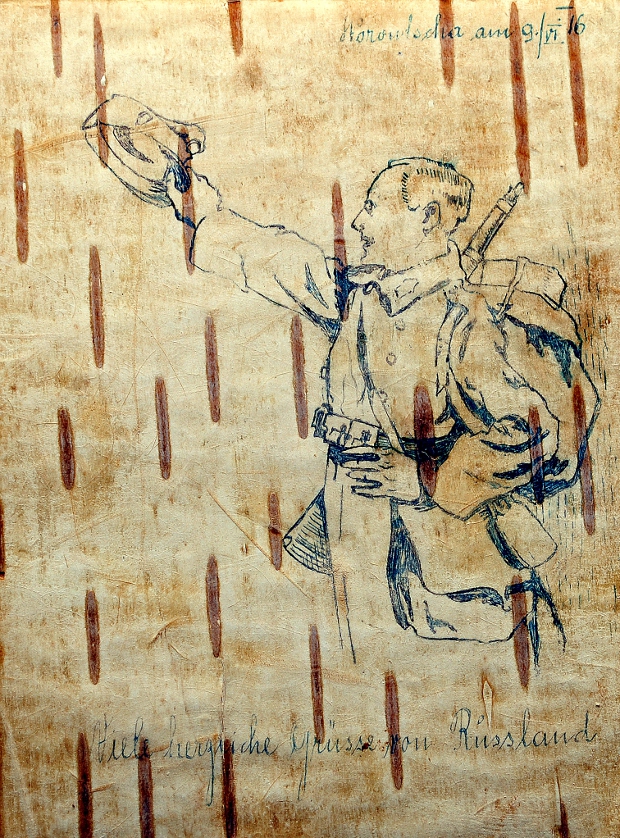 am 9./VI. 16
Viele herzliche Grüsse von Russland